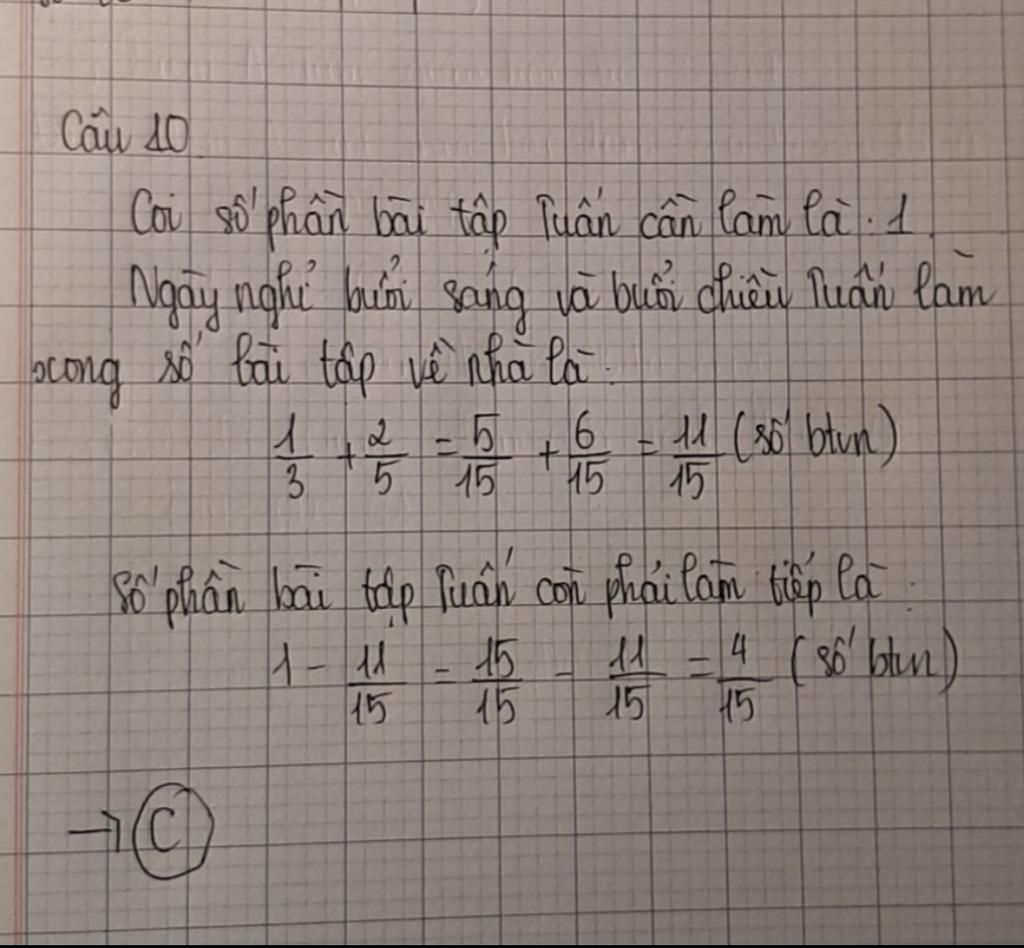 Câu 10
Coi số phần bài tập Tuấn cần làm là: 1
Ngày nghỉ buổi sáng và buổi chiều Tuấn làm
xong số bài tập về nhà là:
1/3 + 2/5 = 5/15 + 6/15 = 11/15 (số btvn)
Số phần bài tập Tuấn còn phải làm tiếp là:
1 - 11/15 = 15/15 - 11/15 = 4/15 (số btvn)
→ C